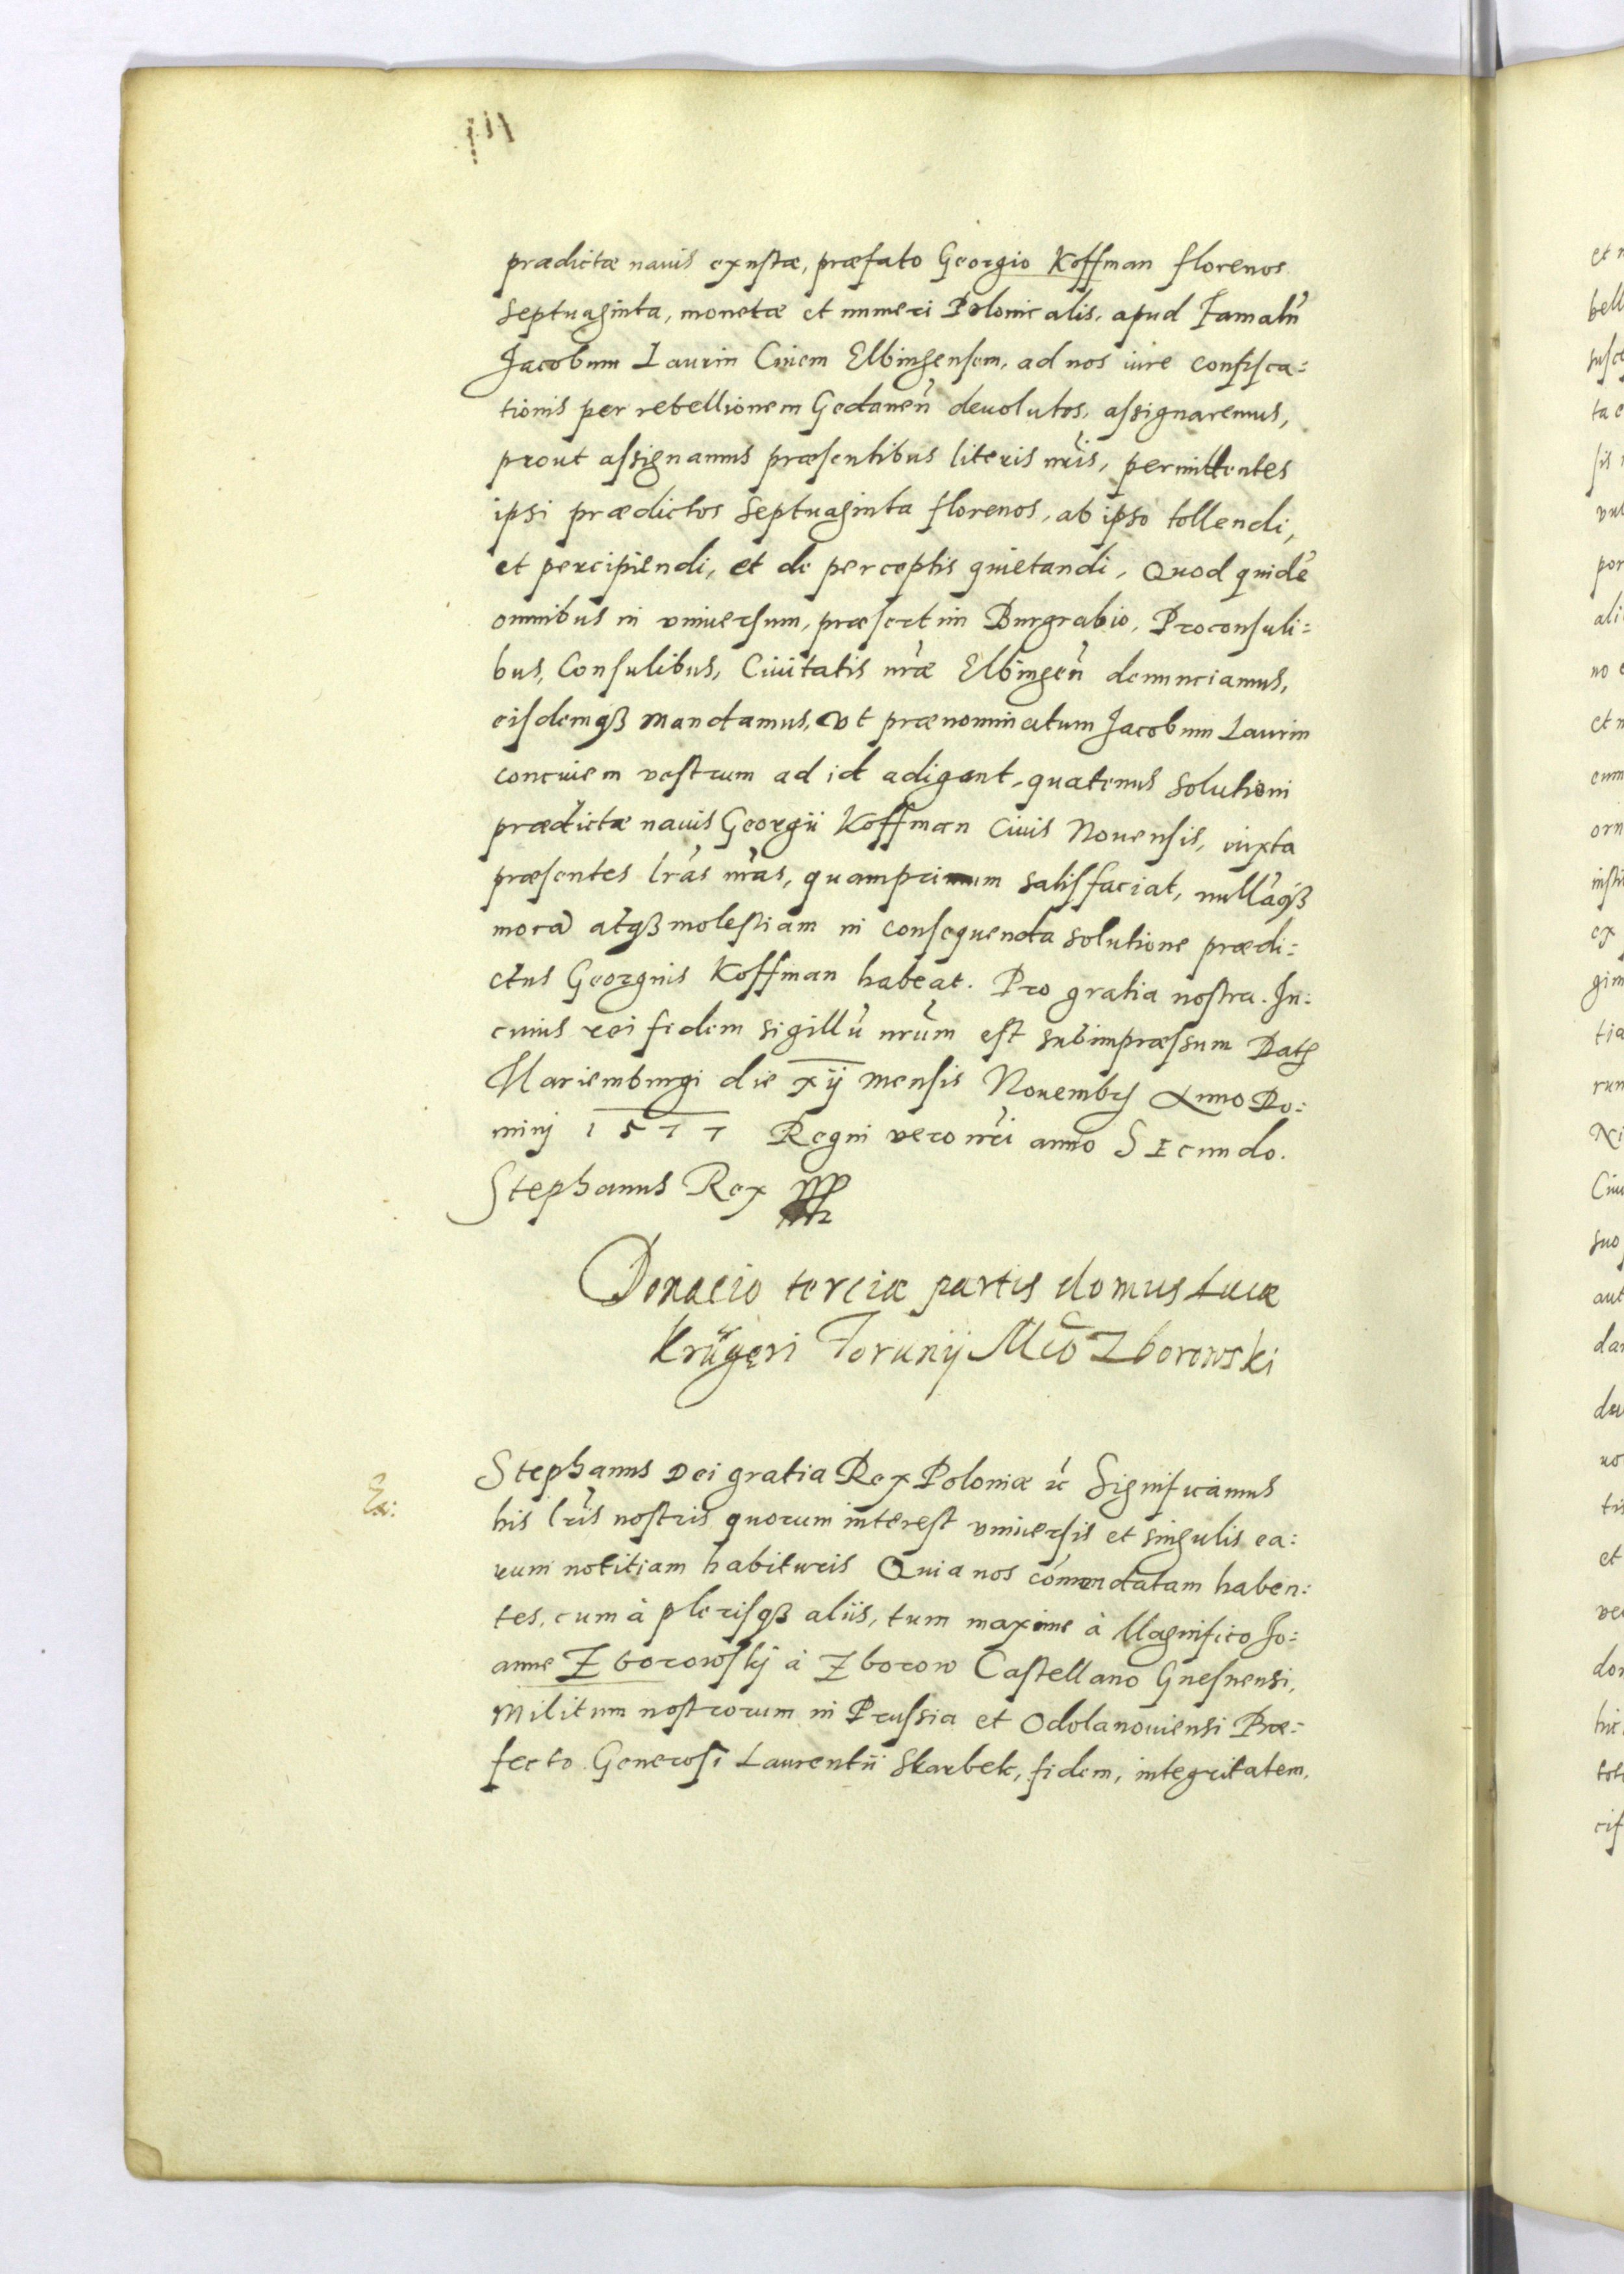 prædictæ nauis exustæ, præfato Georgio Koffman florenos
septuaginta, monetæ et numeri Polonicalis, apud Famatũ
Jacobum Laurin Ciuem Elbingensem, ad nos iure confisca:
tionis per rebellionem Gedaneñ deuolutos, assignaremus,
prout assignamus præsentibus literis nr̃is, permittentes
ipsi prædictos septuaginta florenos, ab ipso tollendi,
et percipiendi, et de perceptis quietandi, Quod quidẽ
omnibus in vniuersum, præsertim Burgrabio, Proconsuli:
bus, Consulibus, Ciuitatis nr̃æ Elbingeñ denunciamus,
eisdemqꝫ mandamus, vt prænominatum Jacobum Laurin
conciuem vestrum ad id adigant, quatenus solutioni
prædictæ nauis Georgii Koffman Ciuis Nouensis, iuxta
præsentes lr̃as nr̃as, quamprimum satisfaciat, nullãqꝫ
morã atqꝫ molestiam in consequenda solutione prædi:
ctus Georgius Koffman habeat. Pro gratia nostra. In:
cuius rei fidem sigillũ nr̃um est subimpræssum Datꝭ
Mariemburgi die xij mensis Novembrꝭ Anno Do:
minj 1577 Regni vero nr̃i anno SEcundo.
Stephanus Rex
Donacio terciæ partis domus Lucæ
Krügeri Torunij Mco Zborowski
Ex:
Stephanus Dei gratia Rex Poloniæ ꝛc Significamus
his lr̃is nostris quorum interest vniuersis et singulis ea:
rum notitiam habituris Quia nos com̃endatam haben:
tes, cum à plerisqꝫ aliis, tum maxime à Magnifico Jo:
anne Zborowskj à Zborow Castellano Gnesnensi,
Militum nostrorum in Prussia et Odolanouiensi Præ:
fecto Generosi Laurentii Skarbek, fidem, integritatem,